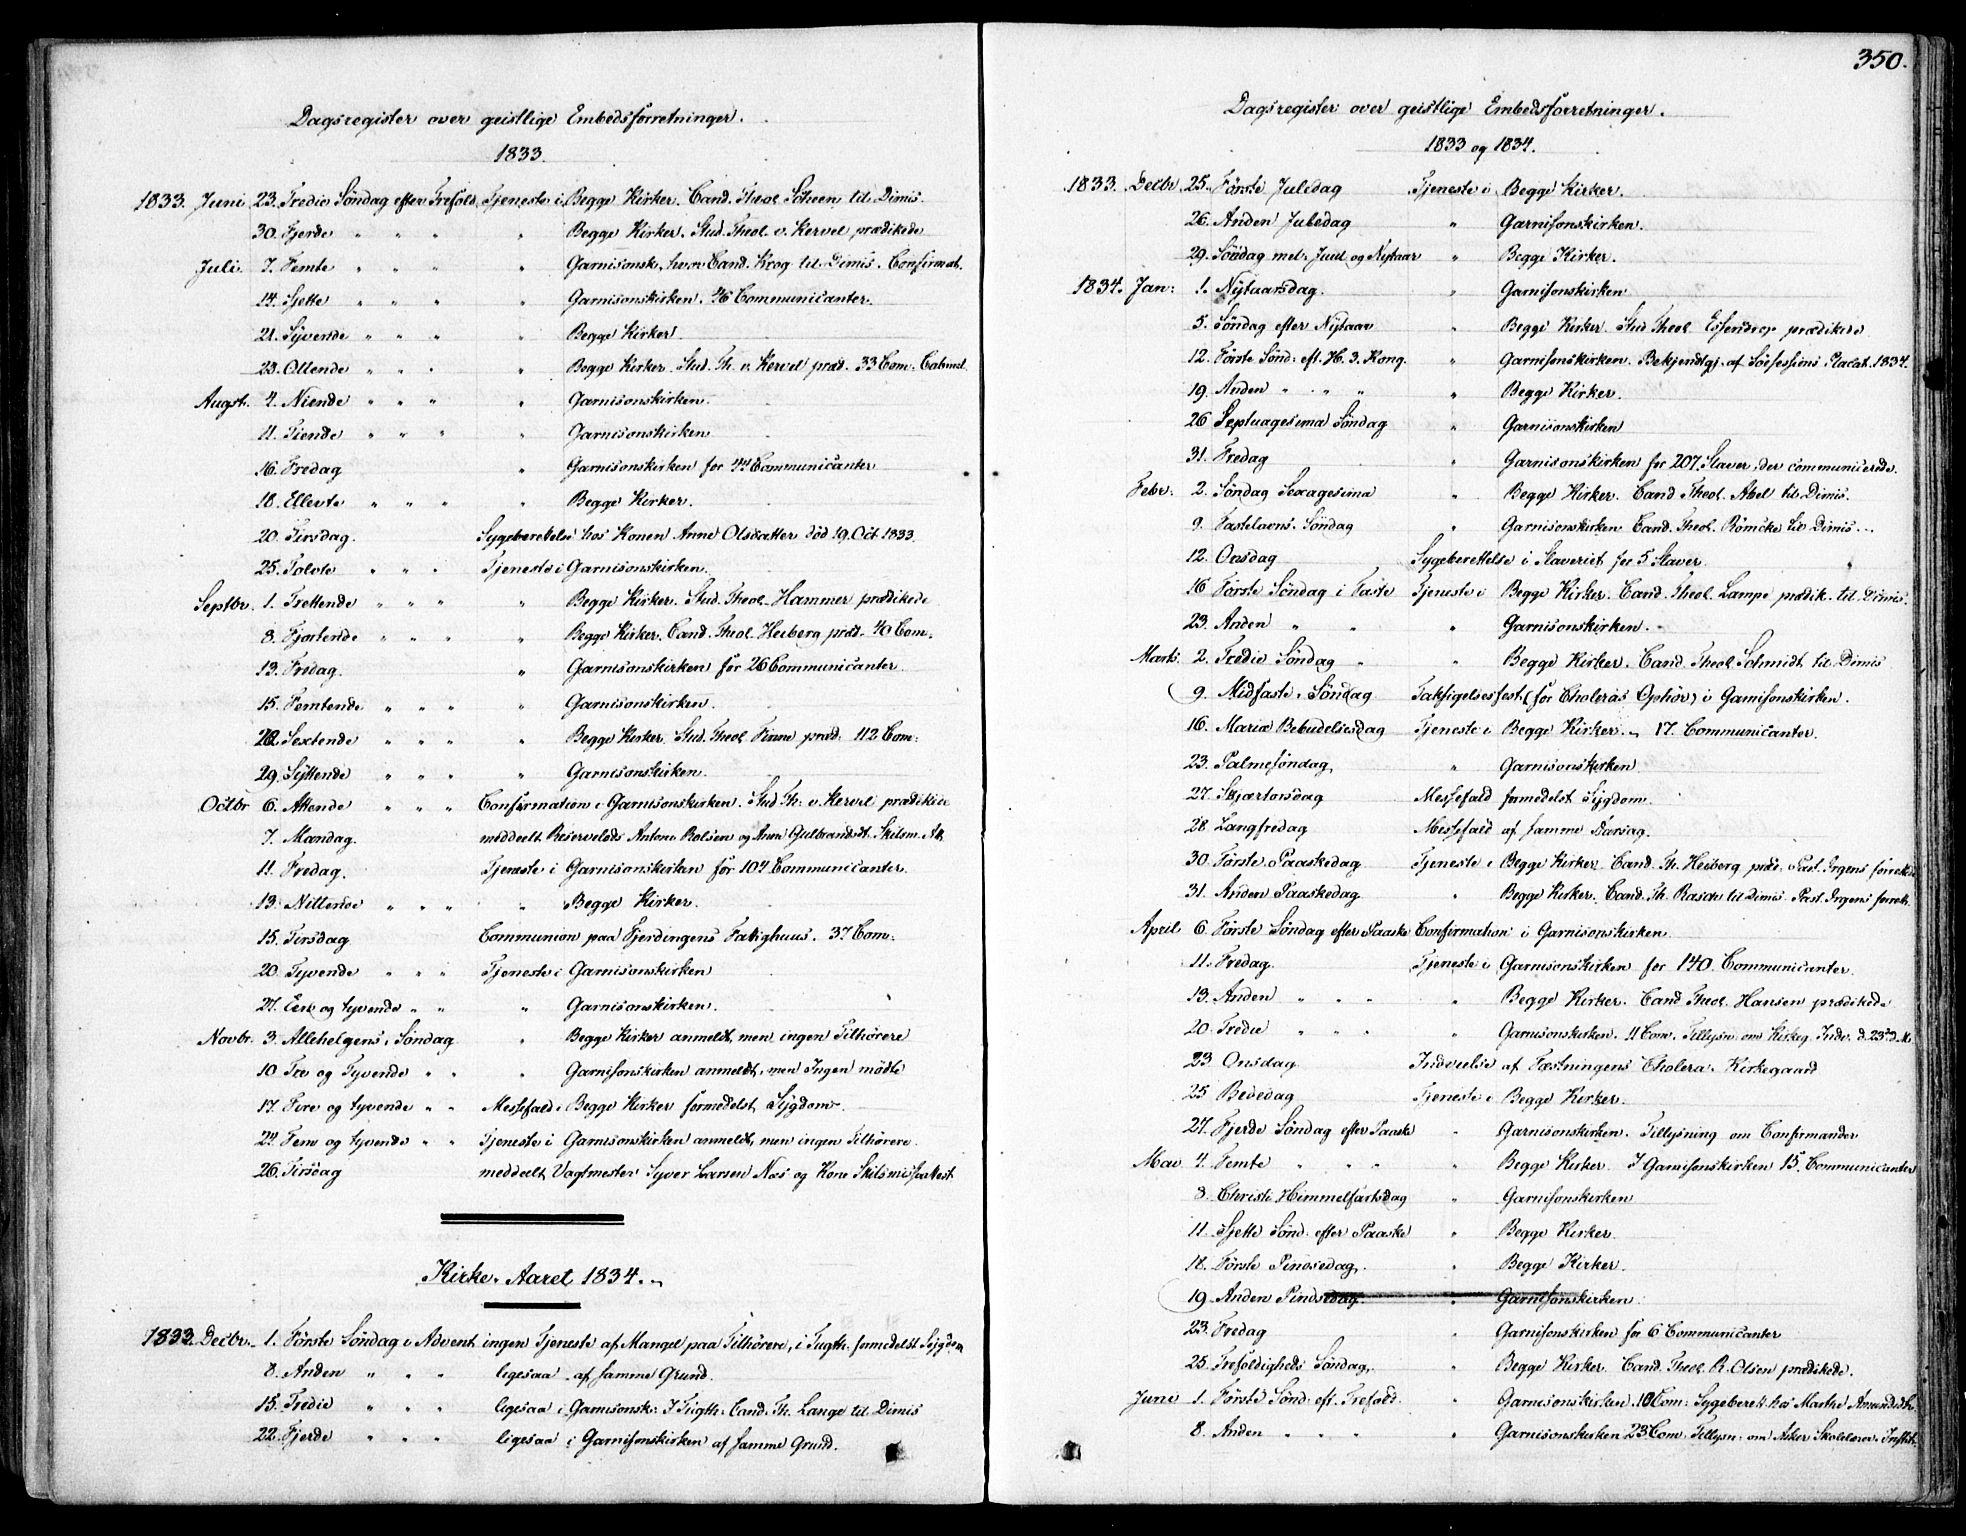 Dagsregister over geistlige Embedsforretninger.
1833.
1833. Juni 23. Tredie Söndag efter Trefold. Tjeneste i Begge Kirker. Cand. Theol. Scheen til Dimis.
30. Fjerde " " " " Begge Kirker. Stud. Theol. v. Kervel prædikede
Juli. 7. Femte " " " " Garnisonsk. hvor Cand. Krog til Dimis. Confirmat.
14. Sjette " " " " Garnisonskirken. 46 Communicanter.
21. Syvende " " " " Begge Kirker.
23. Ottende " " " " Begge Kirker. Stud. Th. v. Kervel præd. 33 Com.
Augst. 4. Niende " " " " Garnisonskirken.
11. Tiende " " " " Garnisonskirken
16. Fredag " Garnisonskirken for 44 Communicanter
18. Ellevte " " " " Begge Kirker.
20. Tirsdag. Sygeberettelse hos Konen Anne Olsdatter död 19. Oct 1833.
25. Tolvte " " " Tjeneste i Garnisonskirken.
Septbr. 1. Trettende " " " " Begge Kirker. Stud. Theol. Hammer prædikede
8. Fjortende " " " " Begge Kirker. Cand. Theol. Heiberg præd. 40 Com.
13. Fredag. " Garnisonskirken for 26 Communicanter
15. Femtende " " " " Garnisonskirken.
22. Sextende " " " " Begge Kirker. Stud. Theol. Finne præd. 112 Com:
29. Syttende " " " " Garnisonskirken.
Octbr 6. Attende " " " Confirmation i Garnisonskirken. Stud. Th: v. Kervel prædikede
7. Mandag. meddeelt Anton Rolsen og Anne Gulbrandsdt. Skilsm. At.
11. Fredag. Tjeneste i Garnisonskirken for 104 Communicanter.
13. Nittende " " " " Begge Kirker.
15. Tirsdag Communion paa Fjerdingens Fatighuus. 37 Com:
20. Tyvende " " " Tjeneste i Garnisonskirken
27. Een og tyvende " " " Garnisonskirken.
Novbr. 3. Allehelgens Söndag " Begge Kirker anmeldt, men ingen Tilhörere
10. Tre og Tyvende " " " Garnisonskirken anmeldt, men Ingen mödte
17. Fire og tyvende " " Messefald i Begge Kirker formedelst Sygdom.
24. Fem og tyvende " " Tjeneste i Garnisonskirken anmeldt, men ingen Tilhörere.
26. Tirsdag meddeelt Vagtmester Syver Larsen Næs og Kone Skilsmisseattest
Kirke-Aaret 1834.
1833. Decbr. 1. Förste Söndag i Advent ingen Tjeneste af Mangel paa Tilhörere, i Tugth. formedelst Sygdom
8. Anden " " " ligesaa af samme Grund.
15. Tredie " " " ligesaa i Garnisonsk: I Tugth: Cand. Th. Lange til Dimis
22. Fjerde " " " ligesaa i Garnisonskirken af samme Grund.
350.
Dagsregister over geistlige Embedsforretninger.
1833 og 1834.
1833. Decbr. 25. Förste Juledag Tjeneste i Begge Kirker.
26. Anden Juledag " Garnisonskirken.
29. Söndag mel. Juul og Nytaar " Begge Kirker.
1834. Jan: 1. Nytaarsdag. " Garnisonskirken
5. Söndag efter Nytaar " Begge Kirker. Stud. Theol. Essendrop prædikede
12. Förste Sönd: eft. H. 3. Kong. " Garnisonskirken. Bekjendtgj. af Söesessions Placat. 1834.
19. Anden " " " " Begge Kirker.
26 Septuagesima Söndag " Garnisonskirken
31. Fredag " Garnisonskirken for 207 Slaver, der communicerede.
Febr: 2. Söndag Sexagesima " Begge Kirker. Cand. Theol. Abel til Dimis.
9. Fastelavns-Söndag " Garnisonskirken Cand. Theol. Römcke til Dimis.
12. Onsdag Sygeberettelse i Slaveriet for 5 Slaver
16 Förste Söndag i Faste Tjeneste i Begge Kirker. Cand. Theol. Lampe prædik. til Dimis.
23. Anden " " " Garnisonskirken.
Marts. 2. Tredie Söndag " " Begge Kirker. Cand. Theol. Schmidt til Dimis
9. Midfaste-Söndag Taksigelsesfest (for Choleras Ophör) i Garnisonskirken.
16. Mariæ Bebudelsesdag Tjeneste i Begge Kirker. 17. Communicanter.
23. Palmesöndag " Garnisonskirken
27. Skjærtorsdag Messefald formedelst Sygdom.
28 Langfredag Messefald af samme Aarsag.
30. Förste Paaskedag Tjeneste i Begge Kirker. Cand. Th. Heiberg præd. Past. Irgens forrett.
31. Anden Paaskedag " Begge Kirker. Cand. Th. Rasch til Dimis Past. Irgens forrett.
April 6. Förste Söndag efter Paaske Confirmation i Garnisonskirken
11. Fredag. Tjeneste i Garnisonskirken for 140 Communicanter.
13. Anden " " " " Begge Kirker. Cand. Theol. Hansen prædikede
20. Tredie " " " " Garnisonskirken. 11 Com. Tillysn. om Kirkeg. Indv. d. 23de d. M.
23 Onsdag Indvielse af Fæstningens Cholera-Kirkegaard
25 Bededag Tjeneste i Begge Kirker.
27. Fjerde Söndag efter Paaske " Garnisonskirken. Tillysning om Confirmander
Mai 4. Femte " " " " Begge Kirker. I Garnisonskirken 15 Communicanter
8. Christi Himmelfartsdag " Garnisonskirken
11. Sjette Sönd. efter Paaske " Begge Kirker.
18. Förste Pindsedag. " Begge Kirker.
19. Anden Pindsedag " Garnisonskirken
23. Fredag " Garnisonskirken for 6 Communicanter
25. Trefoldigheds Söndag. " Begge Kirker. Cand. Theol. R. Olsen prædikede.
Juni 1. Förste Sönd. eft. Trefold. " Garnisonskirken. 10 Com: Sygeberett. hos Marthe Amundsdt.
8. Anden " " " " Garnisonskirken 23 Com. Tillysn. om Asker Skolelærer-Instit.